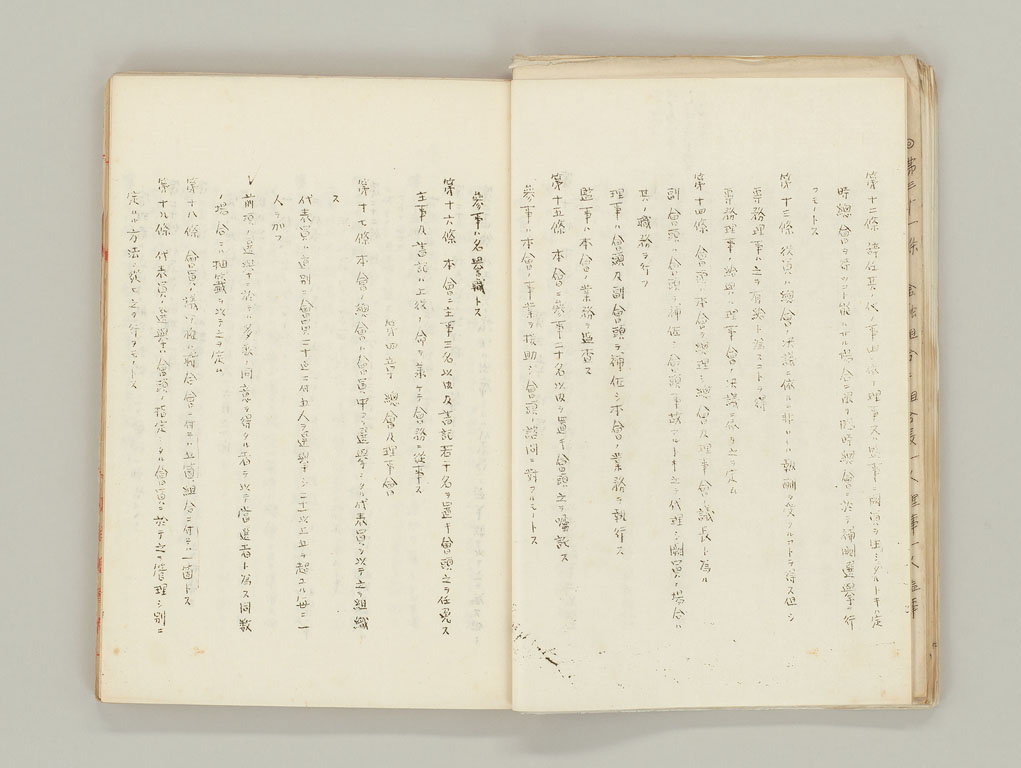 第十二條 辭任其ノ他ノ事由ニ依リ理事又ハ監事ニ闕員ヲ生ジタルトキハ定
時總會ヲ待ツコト能ハザル場合ニ限リ臨時總會ニ於テ補闕選擧ヲ行
フモノトス
第十三條 役員ハ總會ノ決議ニ依ルニ非ザレバ報酬ヲ受クルコトヲ得ズ但シ
專務理事ハ之ヲ有給ト爲スコトヲ得
專務理事ノ給與ハ理事會ノ決議ニ依リ之ヲ定ム
第十四條 會頭ハ本會ヲ總理シ總會及理事會ノ議長ト爲ル
副會頭ハ會頭ヲ補佐シ會頭事故アルトキ之ヲ代理シ闕員ノ場合ハ
其ノ職務ヲ行フ
理事ハ會頭及副會頭ヲ補佐シ本會ノ業務ヲ執行ス
監事ハ本會ノ業務ヲ監査ス
第十五條 本會ニ參事二十名以內ヲ置キ會頭之ヲ囑託ス
參事ハ本會ノ事業ヲ援助シ會頭ノ諮問ニ對フルモノトス
參事ハ名譽職トス
第十六條 本會ニ主事三名以內及書記若干名ヲ置キ會頭之ヲ任免ス
主事及書記ハ上役ノ命ヲ承ケテ會務ニ從事ス
第四章 總會及理事會
第十七條 本會ノ總會ハ會員中ヨリ選擧シタル代表員ヲ以テ之ヲ組織
ス
代表員ハ道別ニ會員二十迄ニ付一人ヲ選擧シ二十以上ヲ超ユル每ニ一
人ヲ加フ
前項ノ選擧ニ於テハ多數ノ同意ヲ得タル者ヲ以テ當選者ト爲ス同數
ノ場合ハ抽籤ヲ以テ之ヲ定ム
第十八條 會員ノ議決權ハ
第十九條 代表員ノ選擧ハ會頭ノ指定シタル會員ニ於テ之ヲ管理シ別ニ
定ムル方法ニ從ヒ之ヲ行フモノトス